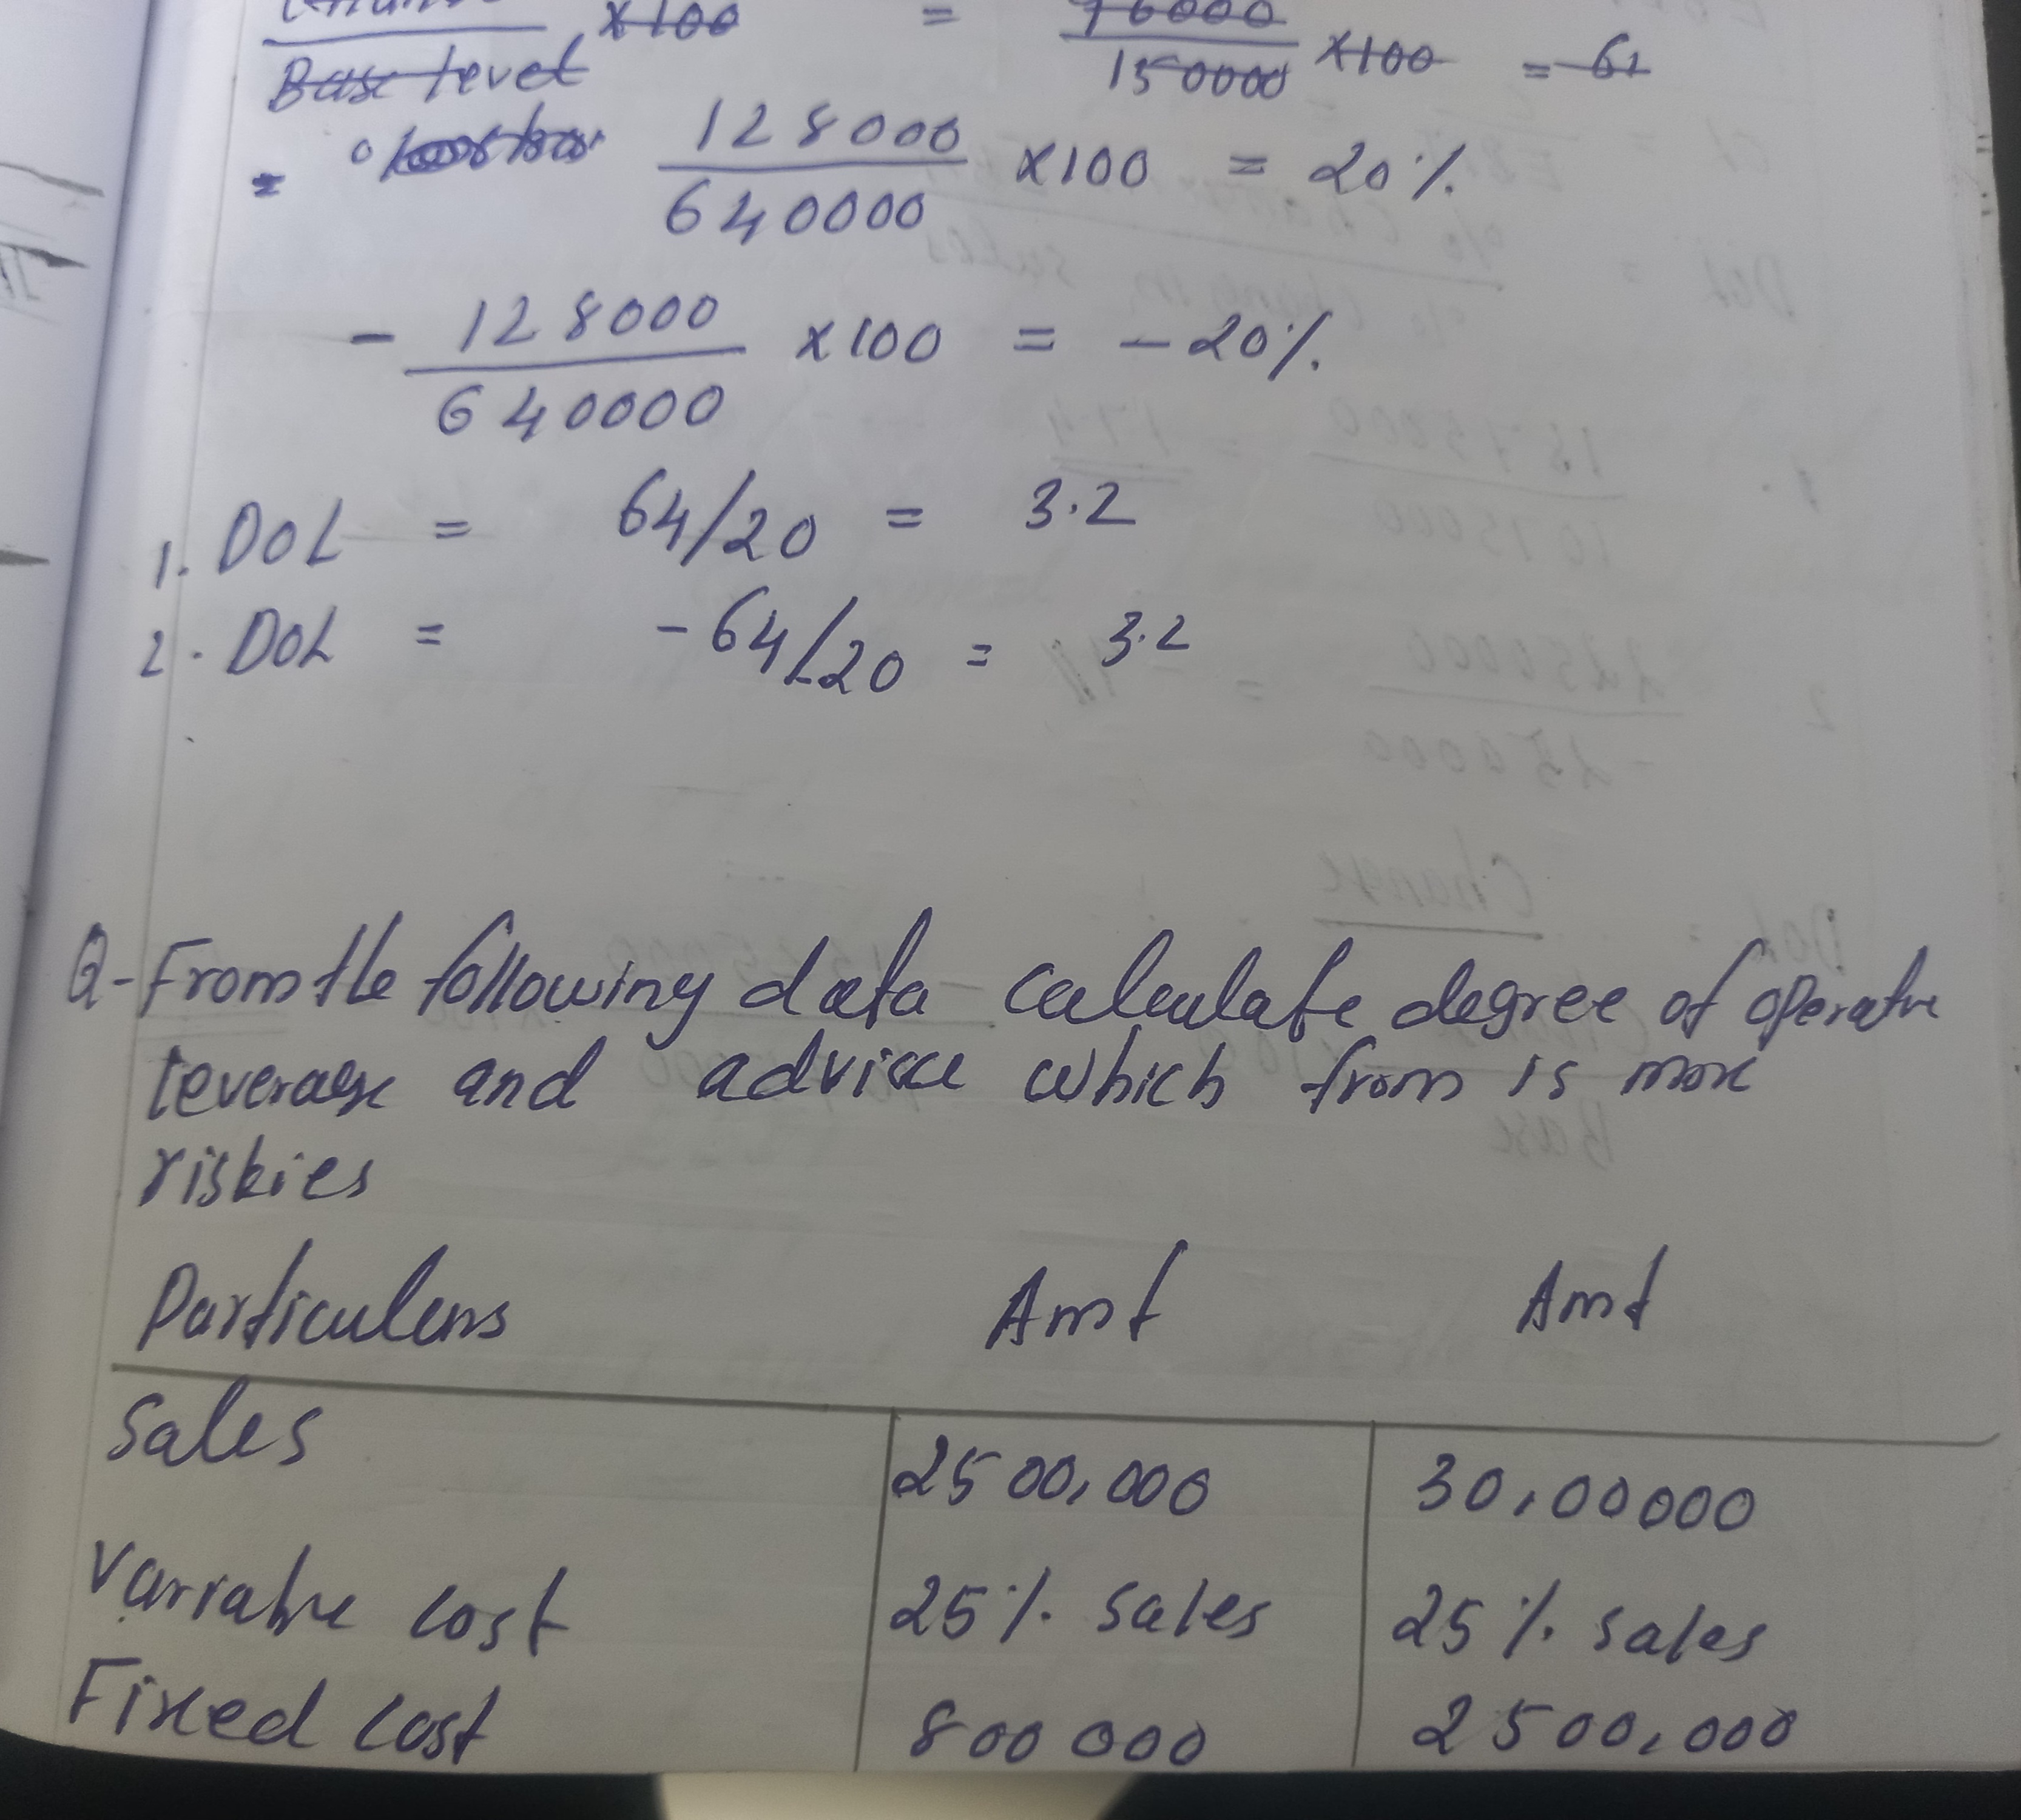 Base level ×100 = 76000 / 150000 ×100 = 61
= 128000 / 640000 ×100 = 20%
- 128000 / 640000 ×100 = - 20%
1. DOL = 64/20 = 3.2
2. DOL = -64/20 = 3.2
Q- From the following data calculate degree of operatve
leverage and advice which from is more
riskies
Particulars Amt Amt
Sales 2500,000 30,00000
Variable cost 25% sales 25% sales
Fixed cost 800000 2500,000